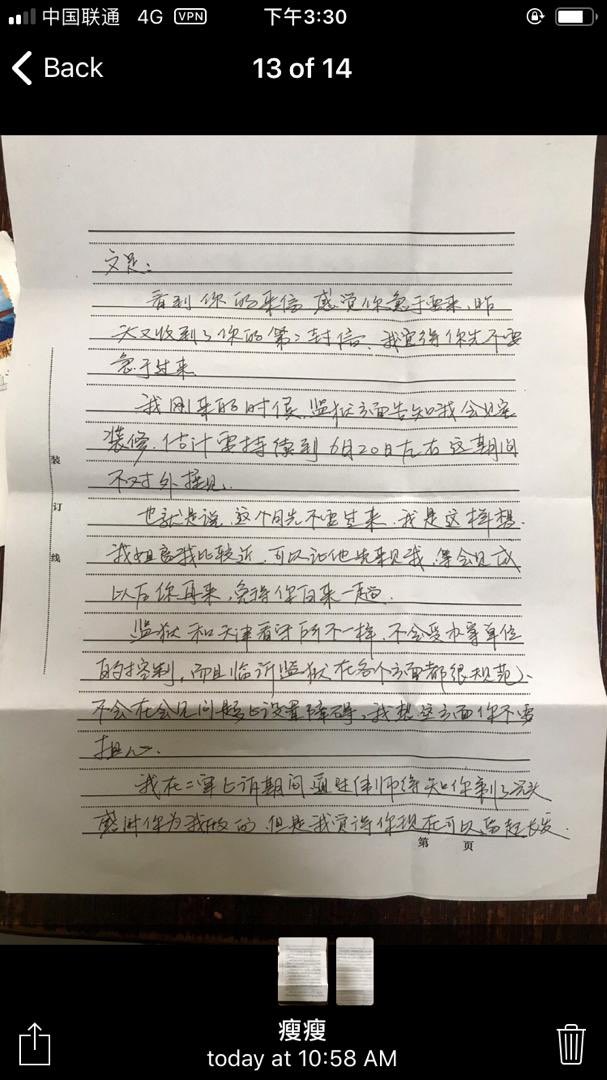 中国联通 4G VPN 下午3:30
Back 13 of 14
文足：
看到你的来信感觉你急于要来，昨
天又收到了你的第二封信，我觉得你先不要
急于过来。
我刚来的时候，监狱方面告知我会见室
装修，估计要持续到6月20日左右这期间
不对外接见。
也就是说，这个月先不要过来，我是这样想，
我姐离我比较近，可以让他先来见我，等会见成
以后你再来，免得你白来一趟。
监狱和天津看守所不一样，不会受办案单位
的控制，而且临沂监狱在各个方面都很规范，
不会在会见问题上设置障碍，我想这方面你不要
担心。
我在二审上诉期间，通过律师得知你剃了光头
感谢你为我做的，但是我觉得你现在可以留起长发，
装
订
线
第 页
瘦瘦
today at 10:58 AM